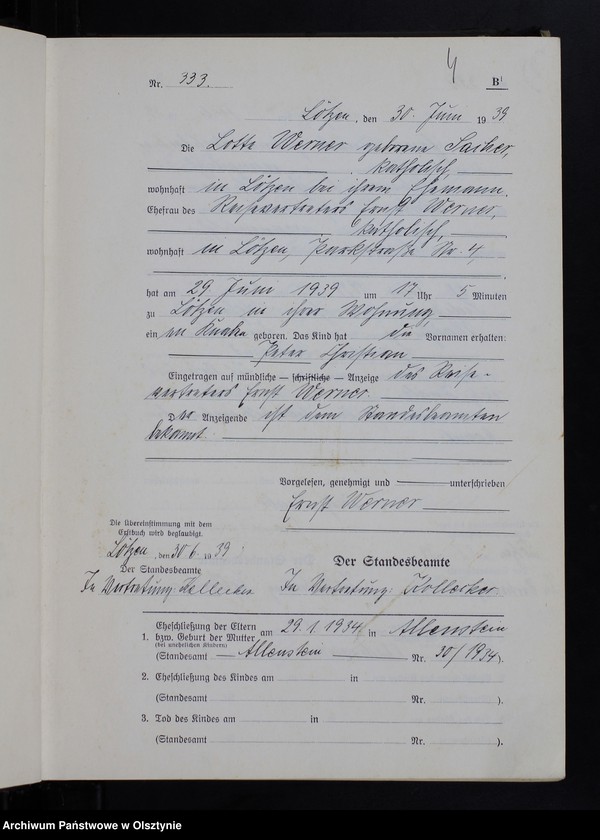 4
Nr. 333. B¹
Lötzen, den 30. Juni 1939
Die Lotte Werner geborene
katholisch,
wohnhaft in Lötzen bei ihrem Ehemann,
Ehefrau des Reisevertreters Ernst Werner,
katholisch,
wohnhaft in Lötzen, Parkstraße Nr. 4,
hat am 29. Juni 1939 um 17 Uhr 5 Minuten
zu Lötzen in ihrer Wohnung,
ein en Knaben geboren. Das Kind hat die Vornamen erhalten:
Peter Christian
Eingetragen auf mündliche — schriftliche — Anzeige des Reise-
vertreters Ernst Werner.
Der Anzeigende ist dem Standesbeamten
bekannt.
Vorgelesen, genehmigt und unterschrieben
Ernst Werner
Die Übereinstimmung mit dem
Erstbuch wird beglaubigt.
Lötzen, den 30.6. 1939
Der Standesbeamte
In Vertretung:
Der Standesbeamte
In Vertretung:
1. Eheschließung der Eltern
bzw. Geburt der Mutter am 29.1.1934 in Allenstein
(bei unehelichen Kindern)
(Standesamt Allenstein Nr. 30/1934).
2. Eheschließung des Kindes am in
(Standesamt Nr. ).
3. Tod des Kindes am in
(Standesamt Nr. ).
Archiwum Państwowe w Olsztynie